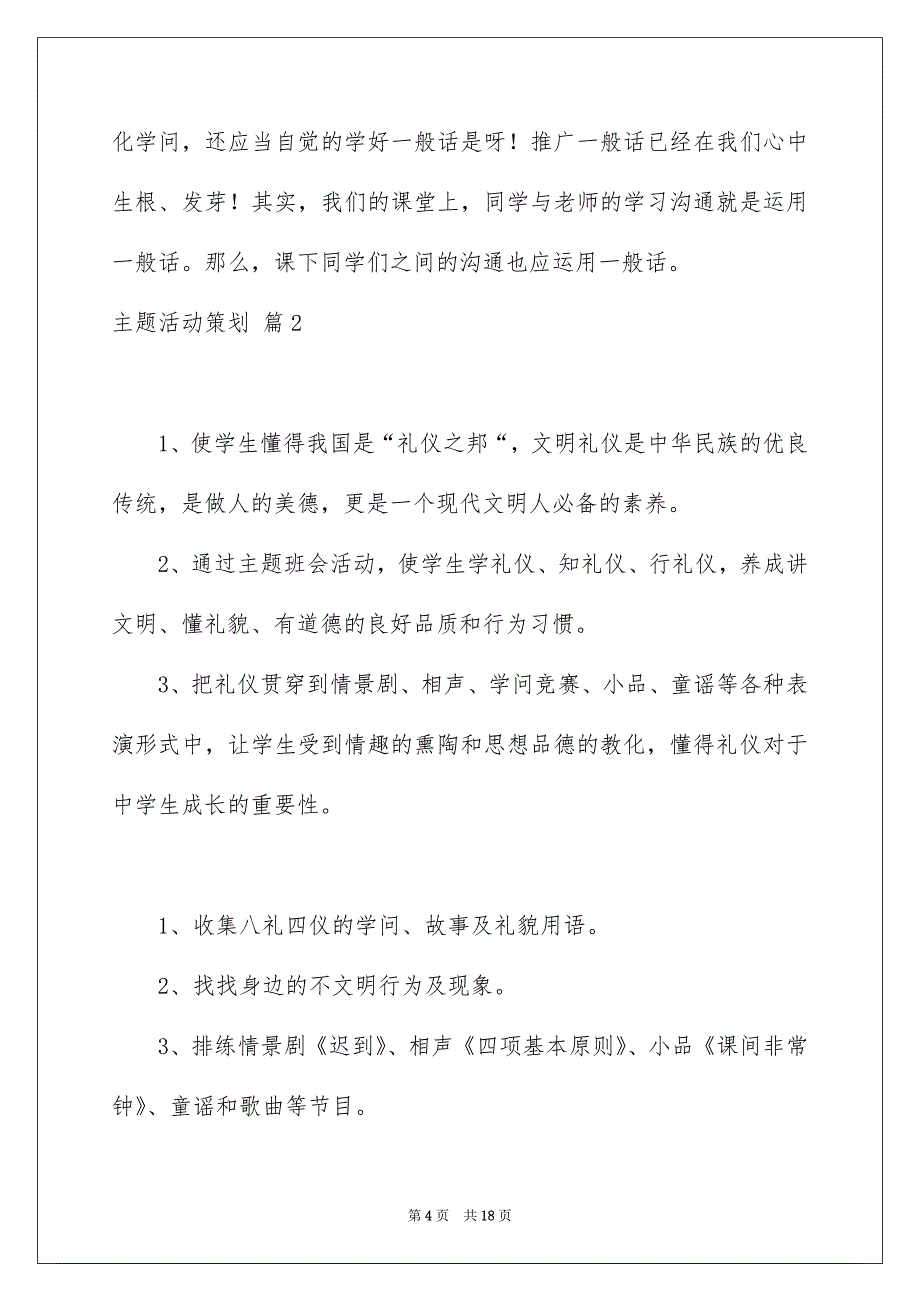 化学问，还应当自觉的学好一般话是呀！推广一般话已经在我们心中
生根、发芽！其实，我们的课堂上，同学与老师的学习沟通就是运用
一般话。那么，课下同学们之间的沟通也应运用一般话。
主题活动策划 篇2
1、使学生懂得我国是“礼仪之邦“，文明礼仪是中华民族的优良
传统，是做人的美德，更是一个现代文明人必备的素养。
2、通过主题班会活动，使学生学礼仪、知礼仪、行礼仪，养成讲
文明、懂礼貌、有道德的良好品质和行为习惯。
3、把礼仪贯穿到情景剧、相声、学问竞赛、小品、童谣等各种表
演形式中，让学生受到情趣的熏陶和思想品德的教化，懂得礼仪对于
中学生成长的重要性。
1、收集八礼四仪的学问、故事及礼貌用语。
2、找找身边的不文明行为及现象。
3、排练情景剧《迟到》、相声《四项基本原则》、小品《课间非常
钟》、童谣和歌曲等节目。
第 4 页 共 18 页